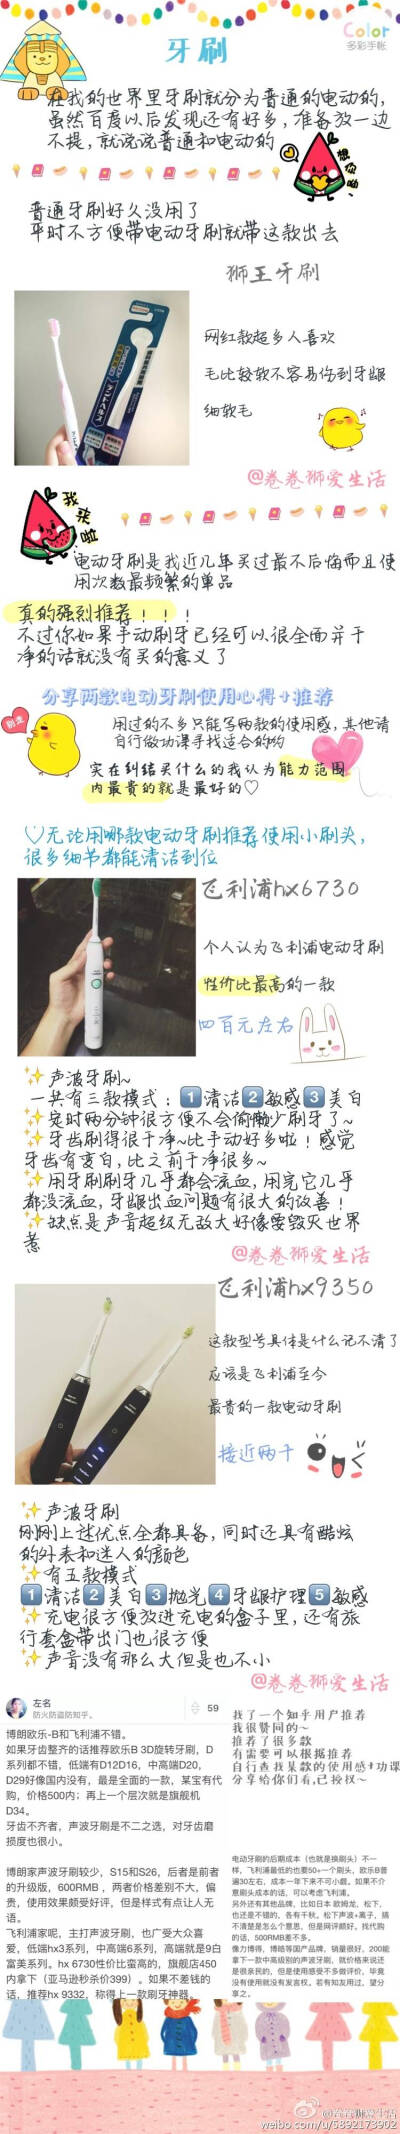 Color
多彩手帐
牙刷
在我的世界里牙刷就分为普通的电动的,
虽然百度以后发现还有好多,准备放一边
不提,就说说普通和电动的
想你呦
普通牙刷好久没用了
平时不方便带电动牙刷就带这款出去
狮王牙刷
网红款超多人喜欢
毛比较软不容易伤到牙龈
细软毛
@卷卷狮爱生活
我来啦
电动牙刷是我近几年买过最不后悔而且使
用次数最频繁的单品
真的强烈推荐!!!
不过你如果手动刷牙已经可以很全面并干
净的话就没有买的意义了
分享两款电动牙刷使用心得+推荐
别走
用过的不多只能写两款的使用感,其他请
自行做功课寻找适合的哟
实在纠结买什么的我认为能力范围
内最贵的就是最好的♡
♡无论用哪款电动牙刷推荐使用小刷头,
很多细节都能清洁到位
飞利浦hx6730
个人认为飞利浦电动牙刷
性价比最高的一款
四百元左右
✨声波牙刷~
一共有三款模式:1清洁2敏感3美白
✨定时两分钟很方便不会偷懒少刷牙了~
✨牙齿刷得很干净~比手动好多啦!感觉
牙齿有变白,比之前干净很多~
✨用牙刷刷牙几乎都会流血,用完它几乎
都没流血,牙龈出血问题有很大的改善!
✨缺点是声音超级无敌大好像要毁灭世界
惹
@卷卷狮爱生活
飞利浦hx9350
这款型号具体是什么记不清了
应该是飞利浦至今
最贵的一款电动牙刷
接近两千
✨声波牙刷
刚刚上述优点全都具备,同时还具有酷炫
的外表和迷人的颜色
✨有五款模式
1清洁2美白3抛光4牙龈护理5敏感
✨充电很方便放进充电的盒子里,还有旅
行套盒带出门也很方便
✨声音没有那么大但是也不小
@卷卷狮爱生活
左名
防火防盗防知乎。
59
博朗欧乐-B和飞利浦不错。
如果牙齿整齐的话推荐欧乐B 3D旋转牙刷,D
系列都不错,低端有D12D16,中高端D20,
D29好像国内没有,最是全面的一款,某宝有代
购,价格500内;再上一个层次就是旗舰机
D34。
牙齿不齐者,声波牙刷是不二之选,对牙齿磨
损度也很小。
博朗家声波牙刷较少,S15和S26,后者是前者
的升级版,600RMB ,两者价格差别不大,偏
贵,使用效果颇受好评,但是样式有点让人无
语。
飞利浦家呢,主打声波牙刷,也广受大众喜
爱,低端hx3系列,中高端6系列,高端就是9白
富美系列。hx 6730性价比蛮高的,旗舰店450
内拿下(亚马逊秒杀价399)。如果不差钱的
话,推荐hx 9332,称得上一款刷牙神器。
找了一个知乎用户推荐
我很赞同的~
推荐了很多款
有需要可以根据推荐
自行查找某款的使用感+功课
分享给你们看,已授权~
电动牙刷的后期成本(也就是换刷头)不一
样,飞利浦最低的也要50+一个刷头,欧乐B普
遍30左右,成本一年下来不可小觑。如果不介
意刷头成本的话,可以考虑飞利浦。
另外还有其他品牌,比如日本 欧姆龙,松下,
也还是不错的,各有千秋。松下声波+离子,搞
不清楚是怎么个意思,但是网评颇好。找代购
的话,500RMB差不多。
像力博得,博皓等国产品牌,销量很好,200能
拿下一款中高级别的声波牙刷,就价格来说还
是很亲民的,但是使用感受不多做评价,毕竟
没有使用就没有发言权。若有知友用过,望分
享之。
weibo.com/u/5892173902